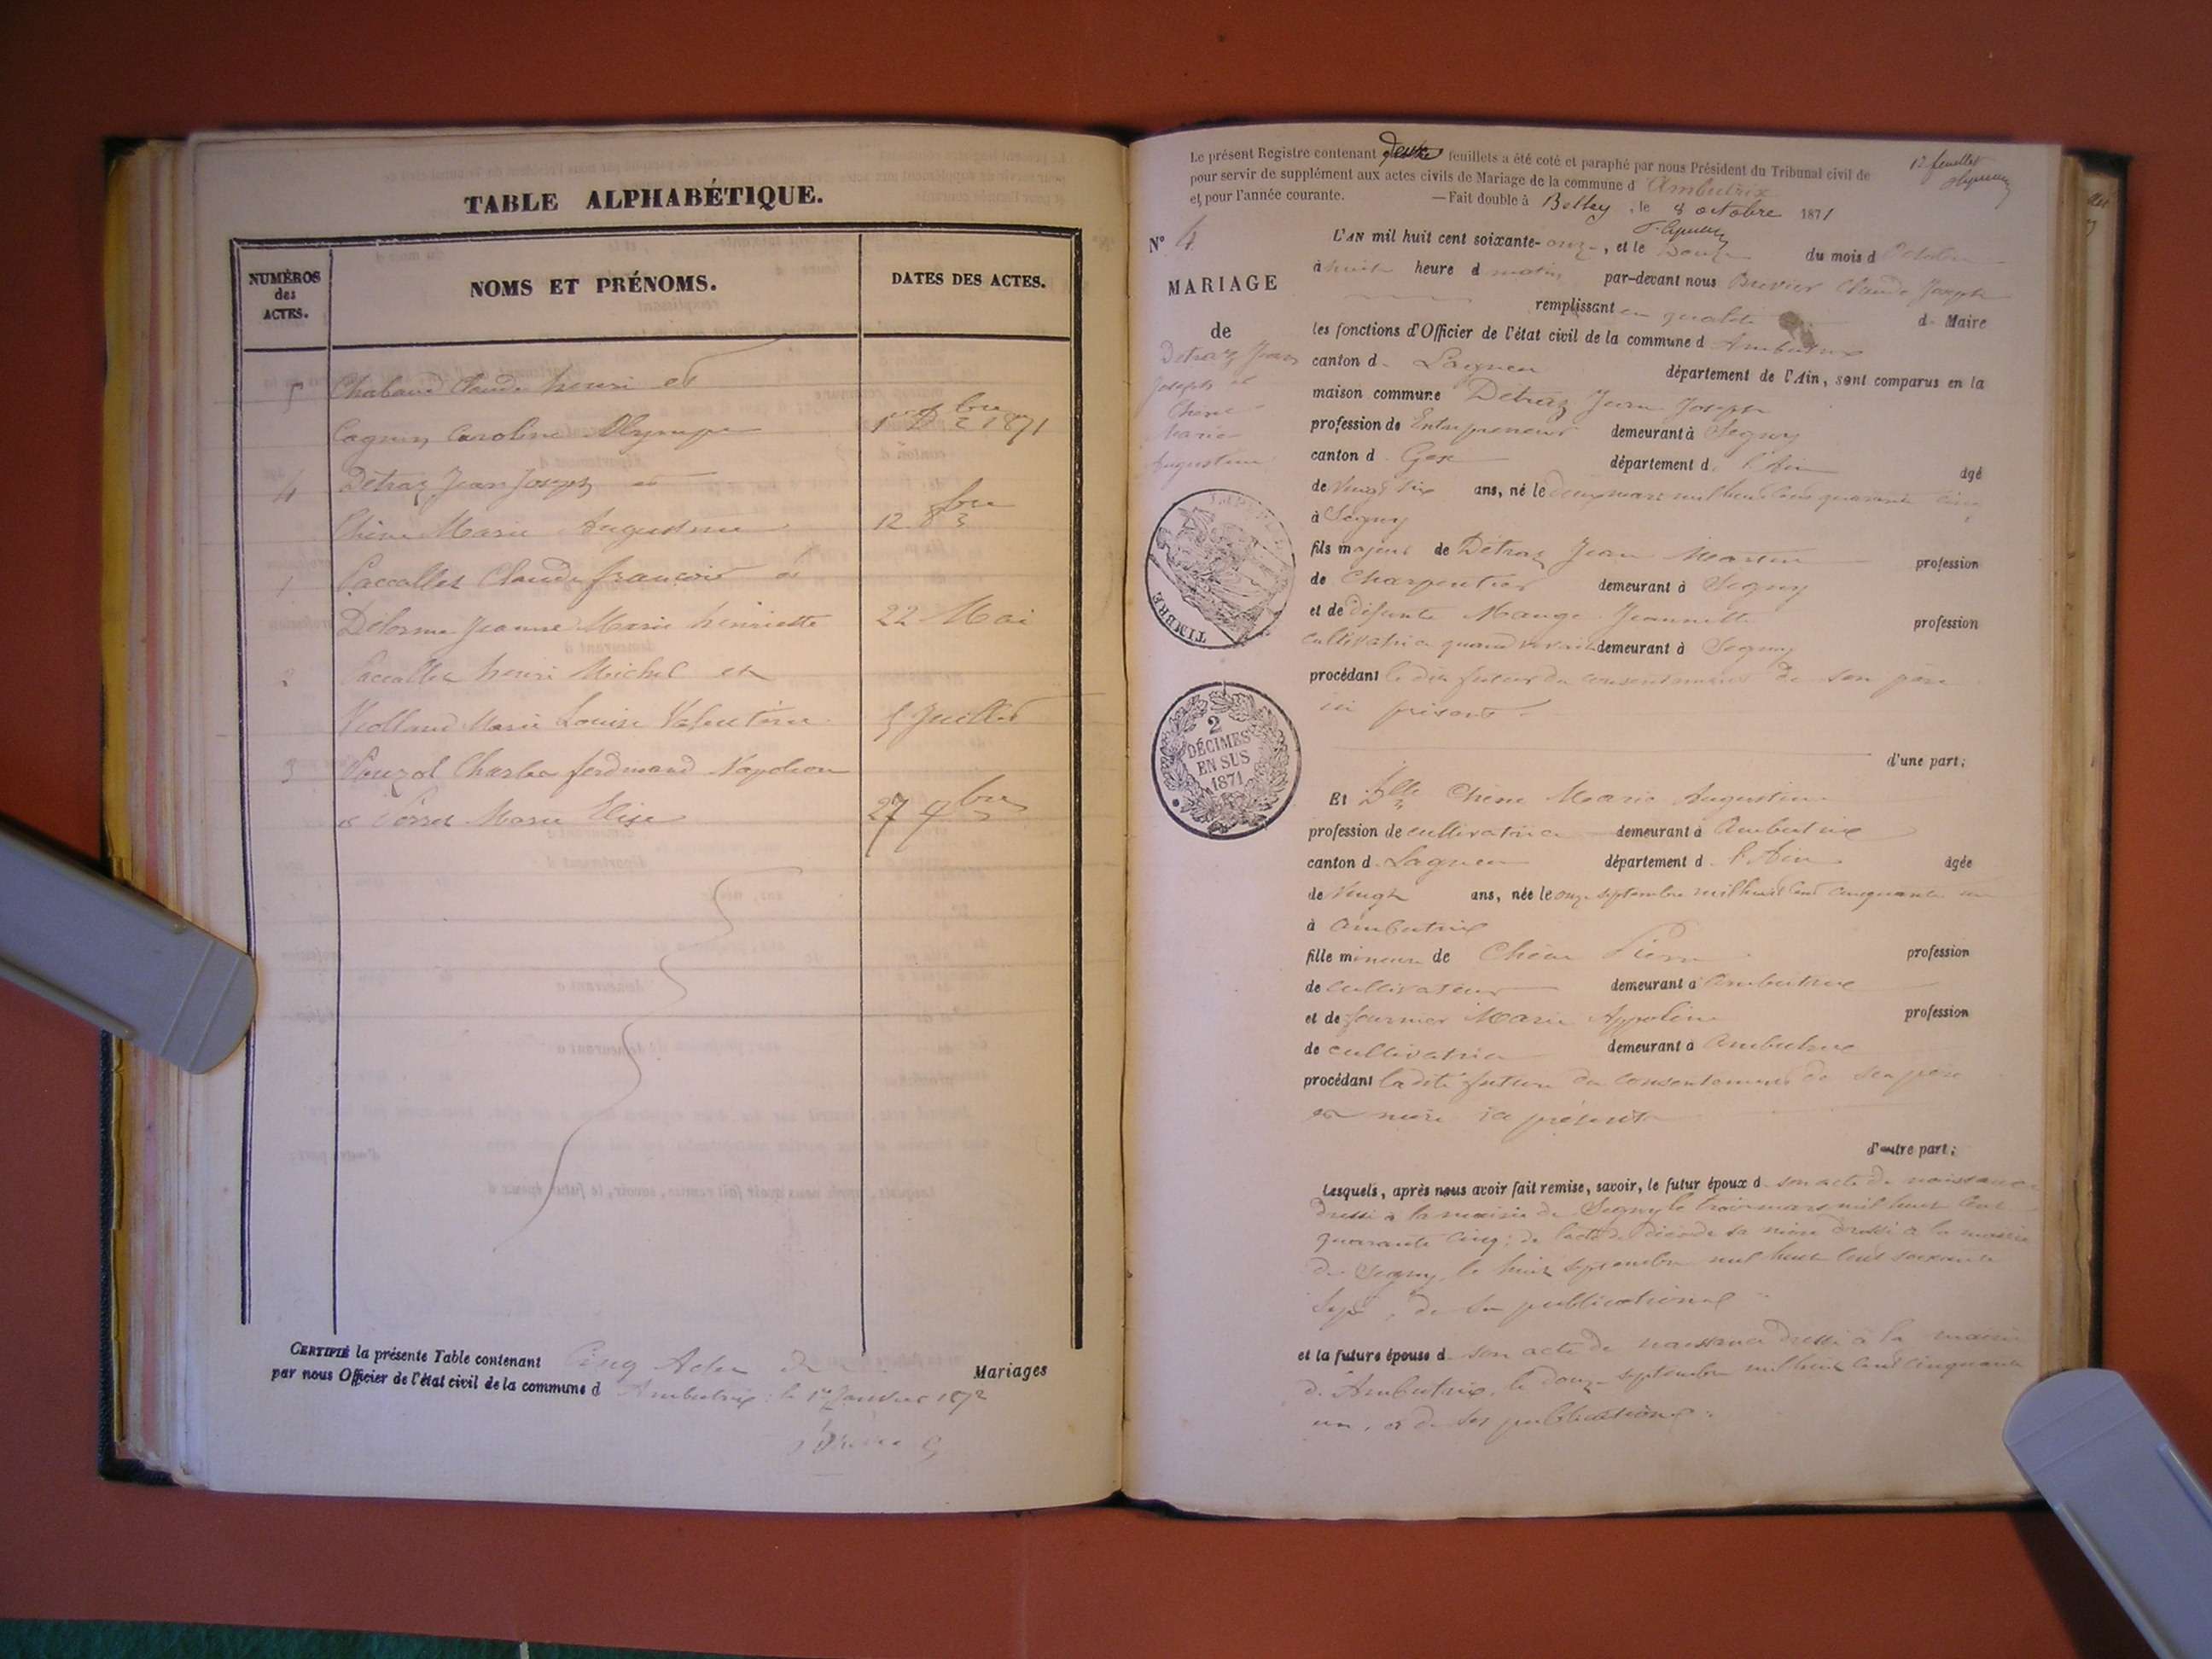 TABLE ALPHABÉTIQUE.
NUMÈROS
des
ACTES.
NOMS ET PRÉNOMS.
DATES DES ACTES.
5 Chabaud Claude henri et
Cognin Caroline Olympe 1er Xbre 1871
4 Détraz Jean Joseph et
Chêne Marie Augustine 12 8bre
1 Paccallet Claude françois et
Délorme Jeanne Marie henriette 22 Mai
2 Paccallet henri Michel et
Violland Marie Louise Valentine 5 Juillet
3 Pouzol Charles ferdinand Napoléon
& Perret Marie Elise 27 9bre
CERTIFIÉ la présente Table contenant Cinq Actes de Mariages
par nous Officier de l'état civil de la commune d Ambutrix le 1er Janvier 1872
Le présent Registre contenant deux feuillets a été coté et paraphé par nous Président du Tribunal civil de
pour servir de supplément aux actes civils de Mariage de la commune d Ambutrix
et pour l'année courante. —Fait double à Belley, le 8 octobre 1871
1er feuillet
N° 4
MARIAGE
de
Détraz Jean
Joseph et
Chêne
Marie
Augustine
TIMBRE
2
DÉCIMES
EN SUS
1871
L'AN mil huit cent soixante-onze, et le Douze du mois d'Octobre
à huit heure d matin par-devant nous Brevier Claude Joseph
remplissant en qualité d Maire
les fonctions d'Officier de l'état civil de la commune d Ambutrix
canton d Lagneu département de l'Ain, sont comparus en la
maison commune Détraz Jean Joseph
profession de Entrepreneur demeurant à Segny
canton d Gex département d l'Ain âgé
de Vingt six ans, né le deux mars mil huit cent quarante cinq
à Segny
fils majeur de Détraz Jean Martin profession
de Charpentier demeurant à Segny
et de défunte Mange Jeannette profession
cultivatrice quand vivait demeurant à Segny
procédant le dit futur du consentement de son père
ici présent
d'une part;
Et Dlle Chêne Marie Augustine
profession de cultivatrice demeurant à Ambutrix
canton d Lagneu département d l'Ain âgée
de Vingt ans, née le onze septembre mil huit cent cinquante un
à Ambutrix
fille mineure de Chêne Pierre profession
de cultivateur demeurant à Ambutrix
et de fournier Marie Appoline profession
de cultivatrice demeurant à Ambutrix
procédant la dite future du consentement de ses père
et mère ici présents
d'autre part;
Lesquels, après nous avoir fait remise, savoir, le futur époux d son acte de naissance
dressé à la mairie de Segny le trois mars mil huit cent
quarante cinq; de l'acte de décès de sa mère dressé à la mairie
de Segny le huit septembre mil huit cent soixante
sept, de ses publications
et la future épouse d son acte de naissance dressé à la mairie
d'Ambutrix, le douze septembre mil huit cent cinquante
un, et de ses publications.